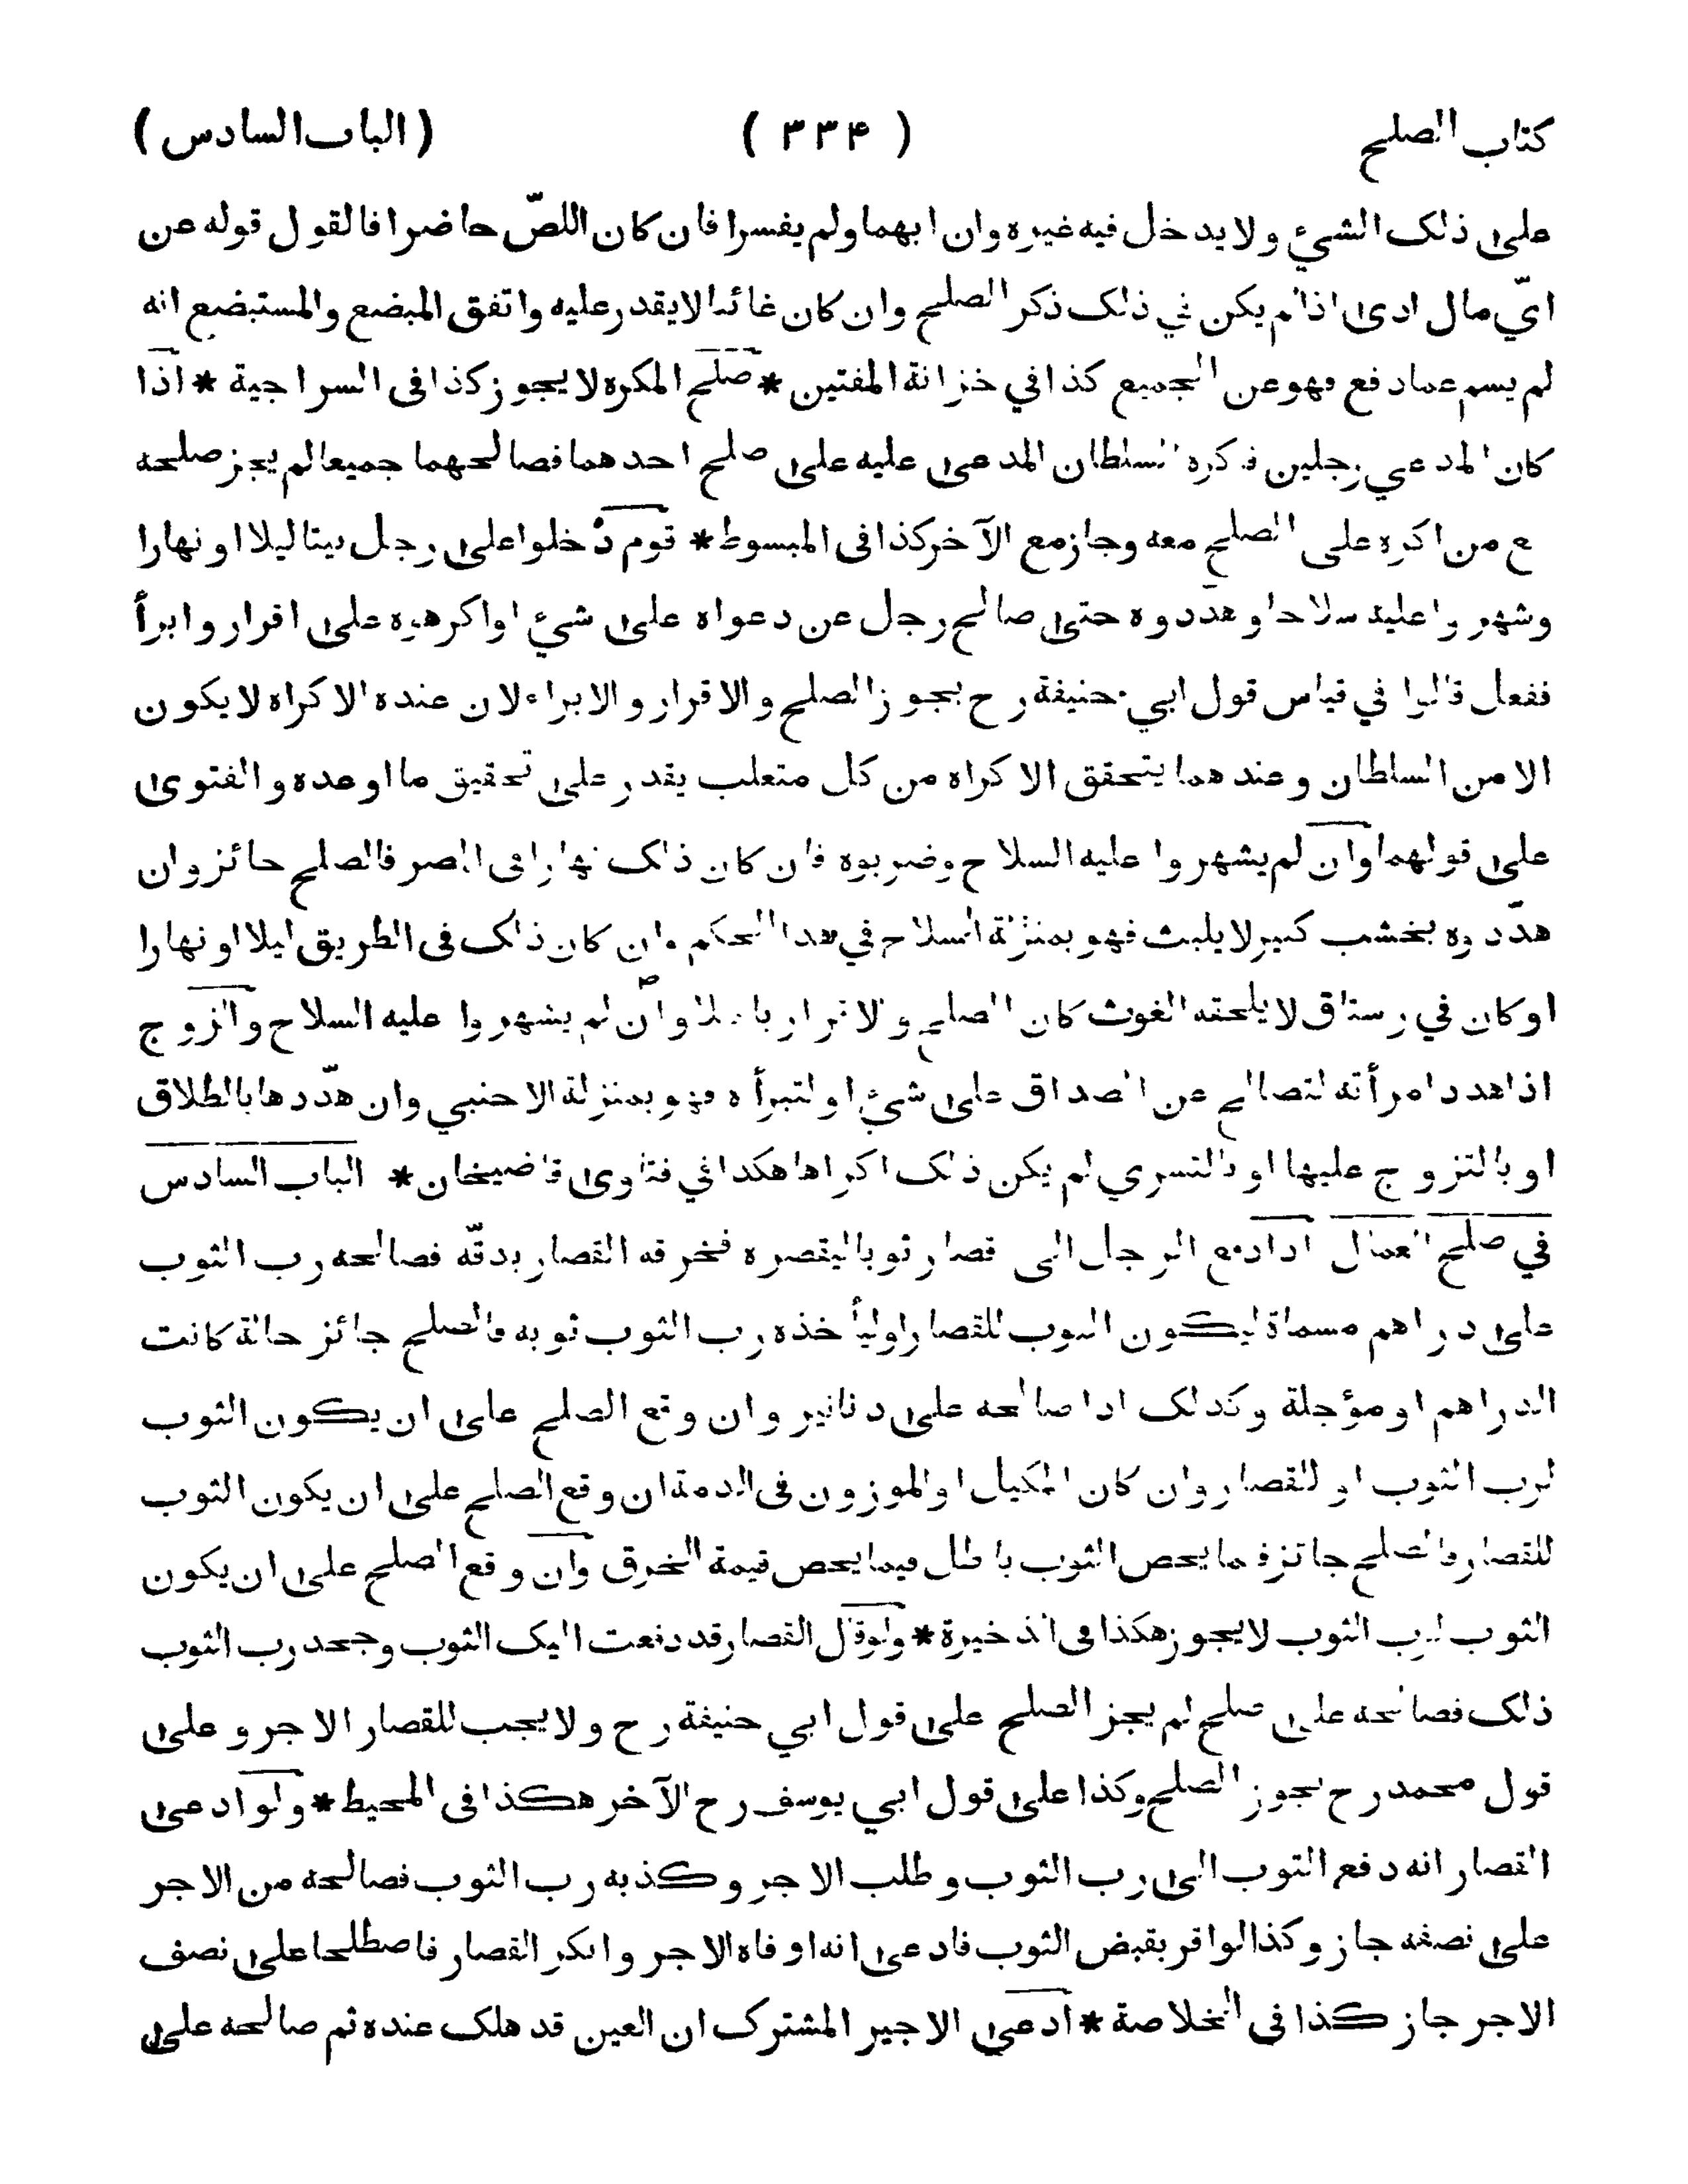 كتاب الصلح ( ٣٣۴ ) ( الباب السادس )
على ذلك الشيء ولا يدخل فيه غيره وان ابهما ولم يفسرا فان كان اللصّ حاضرا فالقول قوله عن
ايّ مال ادى اذا لم يكن في ذلك ذكر الصلح وان كان غائبا لا يقدر عليه واتفق المبضع والمستبضع انه
لم يسم عما دفع فهو عن الجميع كذا في خزانة المفتين * صلح المكره لا يجوز كذا فى السراجية * اذا
كان المدعي رجلين فاكره السلطان المدعى عليه على صلح احدهما فصالحهما جميعا لم يجز صلحه
ع من اكره على الصلح معه وجاز مع الآخر كذا فى المبسوط * قوم دخلوا على رجل بيتا ليلا او نهارا
وشهروا عليه سلاحا وهددوه حتى صالح رجل عن دعواه على شيء او اكرهوه على اقرار وابرأ
ففعل قالوا في قياس قول ابي حنيفة رح يجوز الصلح والاقرار والابراء لان عنده الاكراه لا يكون
الا من السلطان وعندهما يتحقق الاكراه من كل متغلب يقدر على تحقيق ما اوعده والفتوى
على قولهما وان لم يشهروا عليه السلاح وضربوه فان كان ذلك نهارا فى المصر فالصلح جائز وان
هدّدوه بخشب كبير لا يلبث فهو بمنزلة السلاح في هذا الحكم وان كان ذلك فى الطريق ليلا او نهارا
او كان في رستاق لا يلحقه الغوث كان الصلح والاقرار باطلا وان لم يشهروا عليه السلاح والزوج
اذا هدد امرأته لتصالح عن الصداق على شيء او لتبرأه فهو بمنزلة الاجنبي وان هدّدها بالطلاق
او بالتزوج عليها او بالتسري لم يكن ذلك اكراها هكذا في فتاوى قاضيخان * الباب السادس
في صلح العمال اذا دفع الرجل الى قصار ثوبا ليقصره فخرقه القصار بدقّه فصالحه رب الثوب
على دراهم مسماة ليكون الثوب للقصار او ليأخذه رب الثوب ثوبه فالصلح جائز حالة كانت
الدراهم او مؤجلة وكذلك اذا صالحه على دنانير وان وقع الصلح على ان يكون الثوب
لرب الثوب او للقصار وان كان المكيل او الموزون فى الذمة ان وقع الصلح على ان يكون الثوب
للقصار فالصلح جائز فيما يخص الثوب باطل فيما يخص قيمة الخرق وان وقع الصلح على ان يكون
الثوب لرب الثوب لا يجوز هكذا فى الذخيرة * ولو قال القصار قد دفعت اليك الثوب وجحد رب الثوب
ذلك فصالحه على صلح لم يجز الصلح على قول ابي حنيفة رح ولا يجب للقصار الاجر وعلى
قول محمد رح يجوز الصلح وكذا على قول ابي يوسف رح الآخر هكذا فى المحيط * ولو ادعى
القصار انه دفع الثوب الى رب الثوب وطلب الاجر وكذبه رب الثوب فصالحه من الاجر
على نصفه جاز وكذا لو اقر بقبض الثوب فادعى انه اوفاه الاجر وانكر القصار فاصطلحا على نصف
الاجر جاز كذا فى الخلاصة * ادعى الاجير المشترك ان العين قد هلك عنده ثم صالحه على